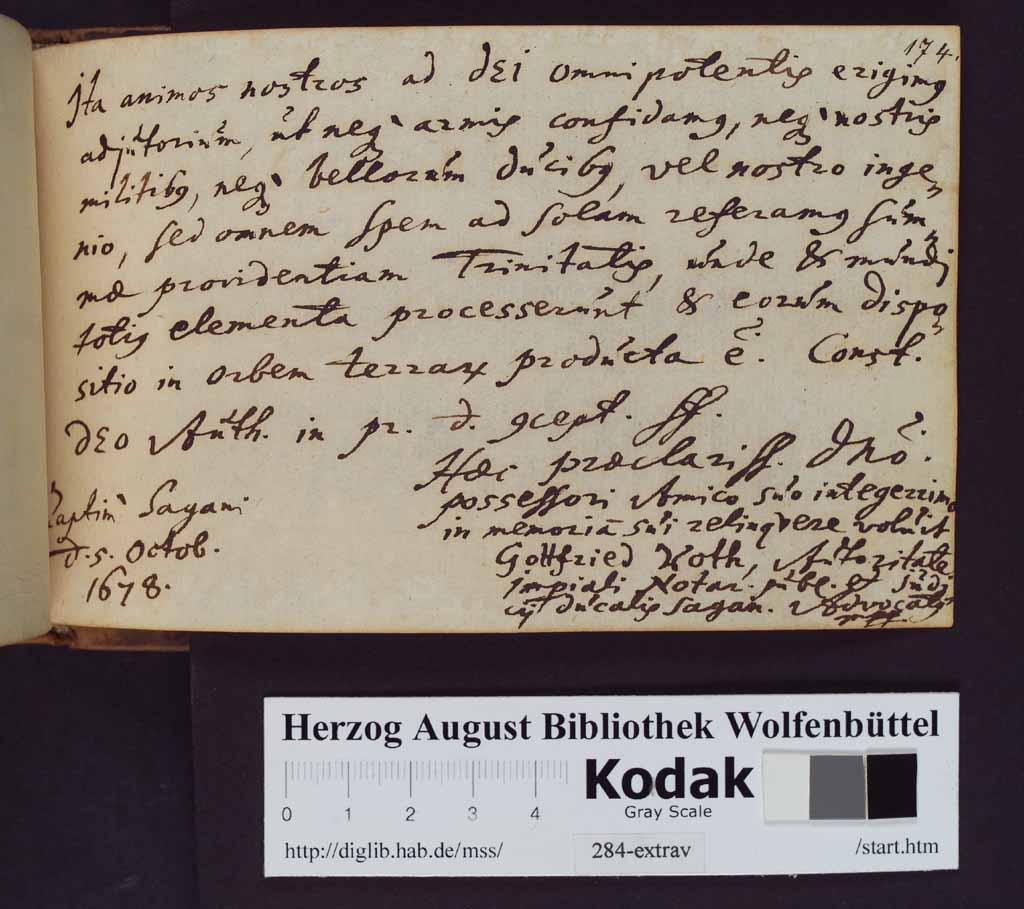 174.
Ita animos nostros ad DEI omnipotentis erigimꝰ
adjutorium, ut neqꝫ armis confidamꝰ, neqꝫ nostris
militibꝰ, neqꝫ bellorum ducibꝰ, vel nostro inge-
nio, sed omnem spem ad solam referamꝰ sum-
mæ providentiam Trinitatis, unde & mundi
totiꝰ elementa processerunt & eorum dispo-
sitio in orbem terraꝝ producta ē. Const.
DEO Auth. in pr. d. ꝯcept. ff.
Hæc præclariss. Dnō.
possessori Amico suo integerrimo
in memoriā sui relinqvere voluit
Gottfried Roth, Autoritate
Impiali Notar. publ. & Judi-
cij ducalis Sagan. Advocatꝰ
mpp.
Raptim Sagani
d. 5. Octob.
1678.
Herzog August Bibliothek Wolfenbüttel
0 1 2 3 4
Kodak
Gray Scale
http://diglib.hab.de/mss/ 284-extrav /start.htm